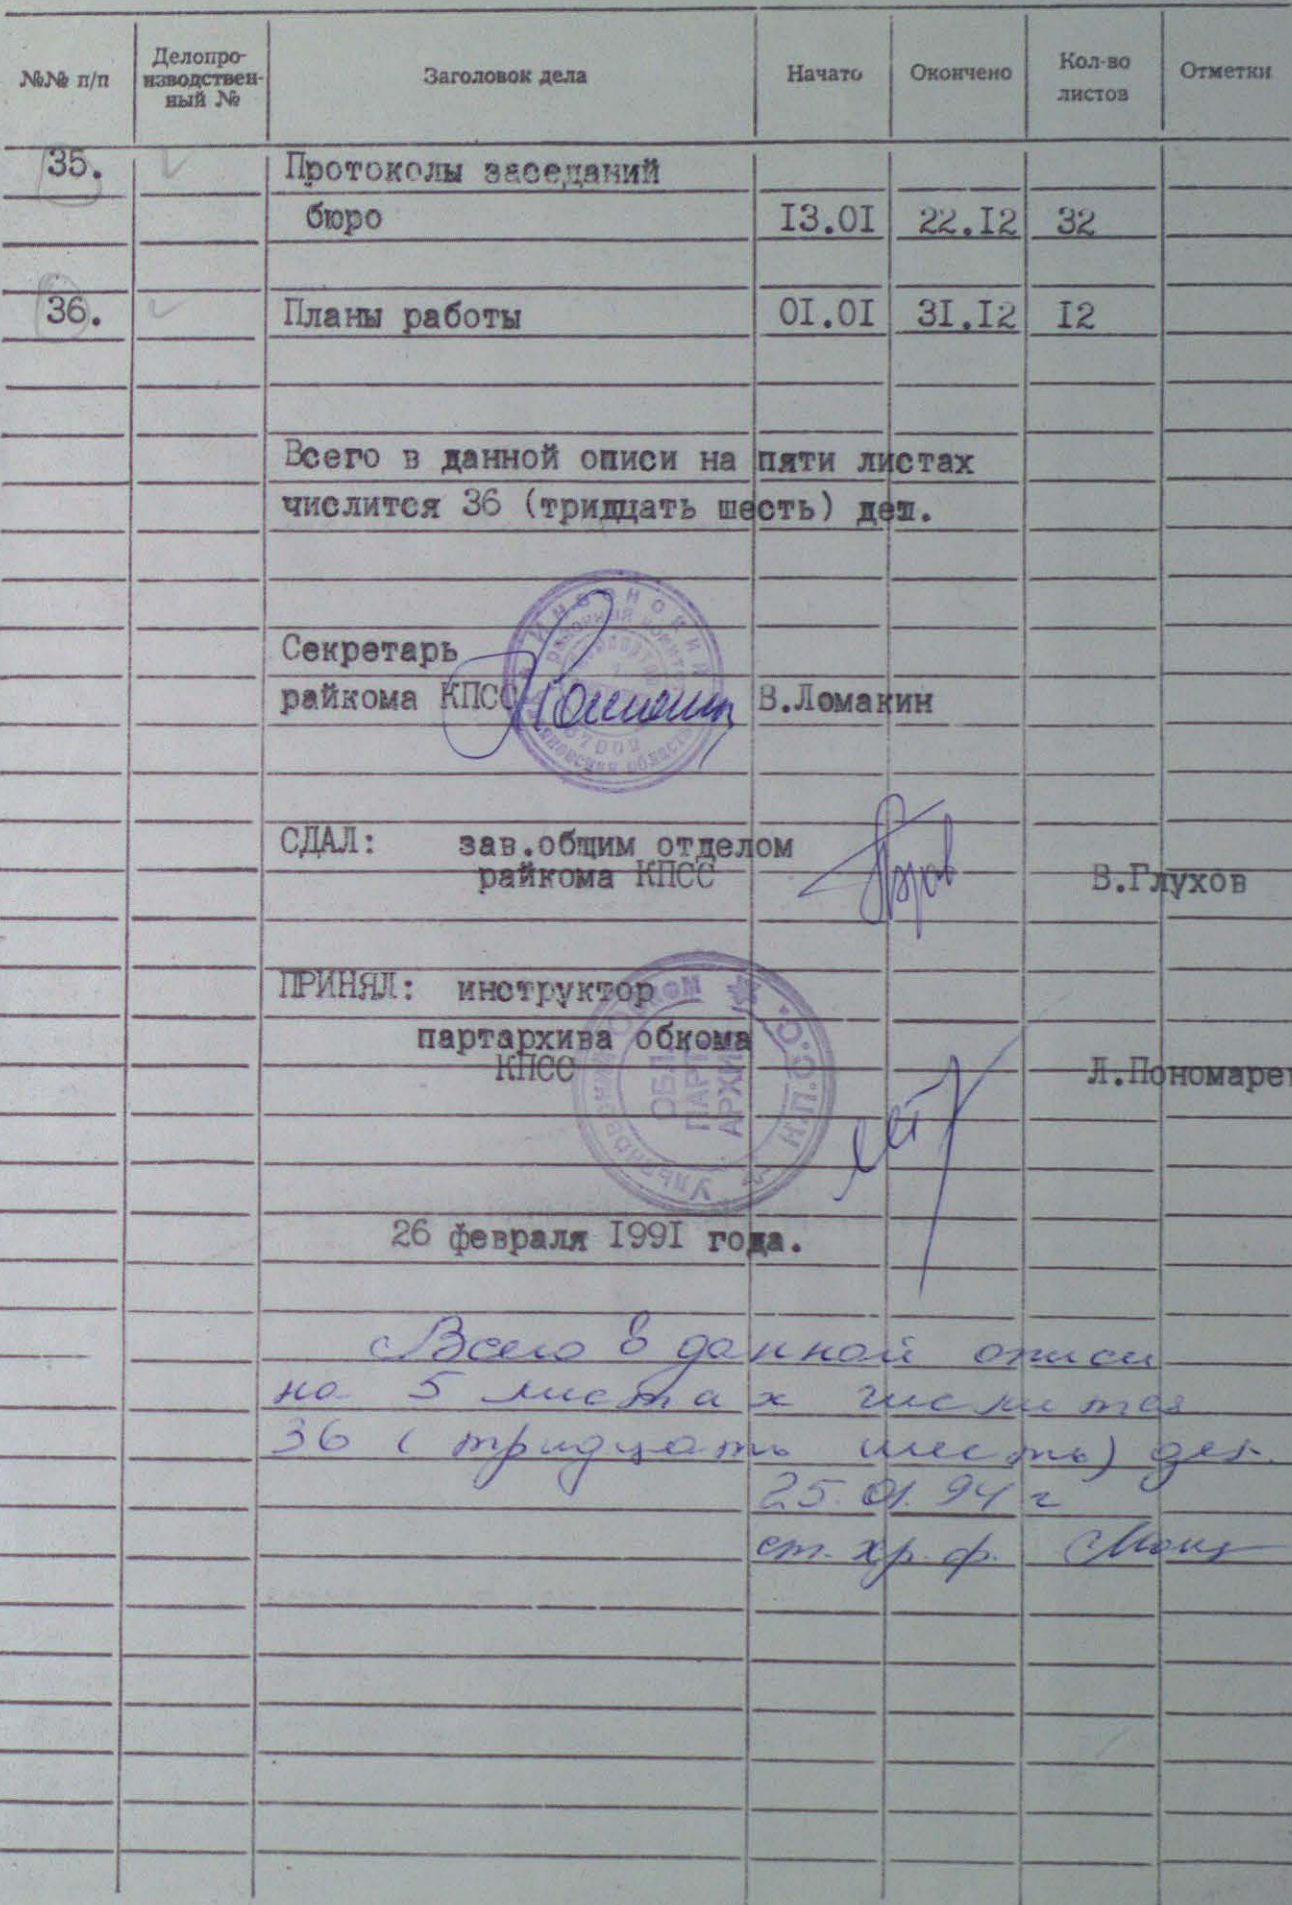 №№ п/п Делопро-изводствен-ный № Заголовок дела Начато Окончено Кол-во листов Отметки
35. Протоколы заседаний
бюро 13.01 22.12 32
36. Планы работы 01.01 31.12 12
Всего в данной описи на пяти листах
числится 36 (тридцать шесть) дел.
Секретарь
райкома КПСС В.Ломакин
СДАЛ: зав.общим отделом
райкома КПСС В.Глухов
ПРИНЯЛ: инструктор
партархива обкома
КПСС Л.Пономарев
Ульяновский Обком К.П.С.С.
ОБЛ.
ПАРТ
АРХИВ
26 февраля 1991 года.
Всего в данной описи
на 5 листах числится
36 (тридцать шесть) дел.
25.01.94 г
ст. хр. ф.